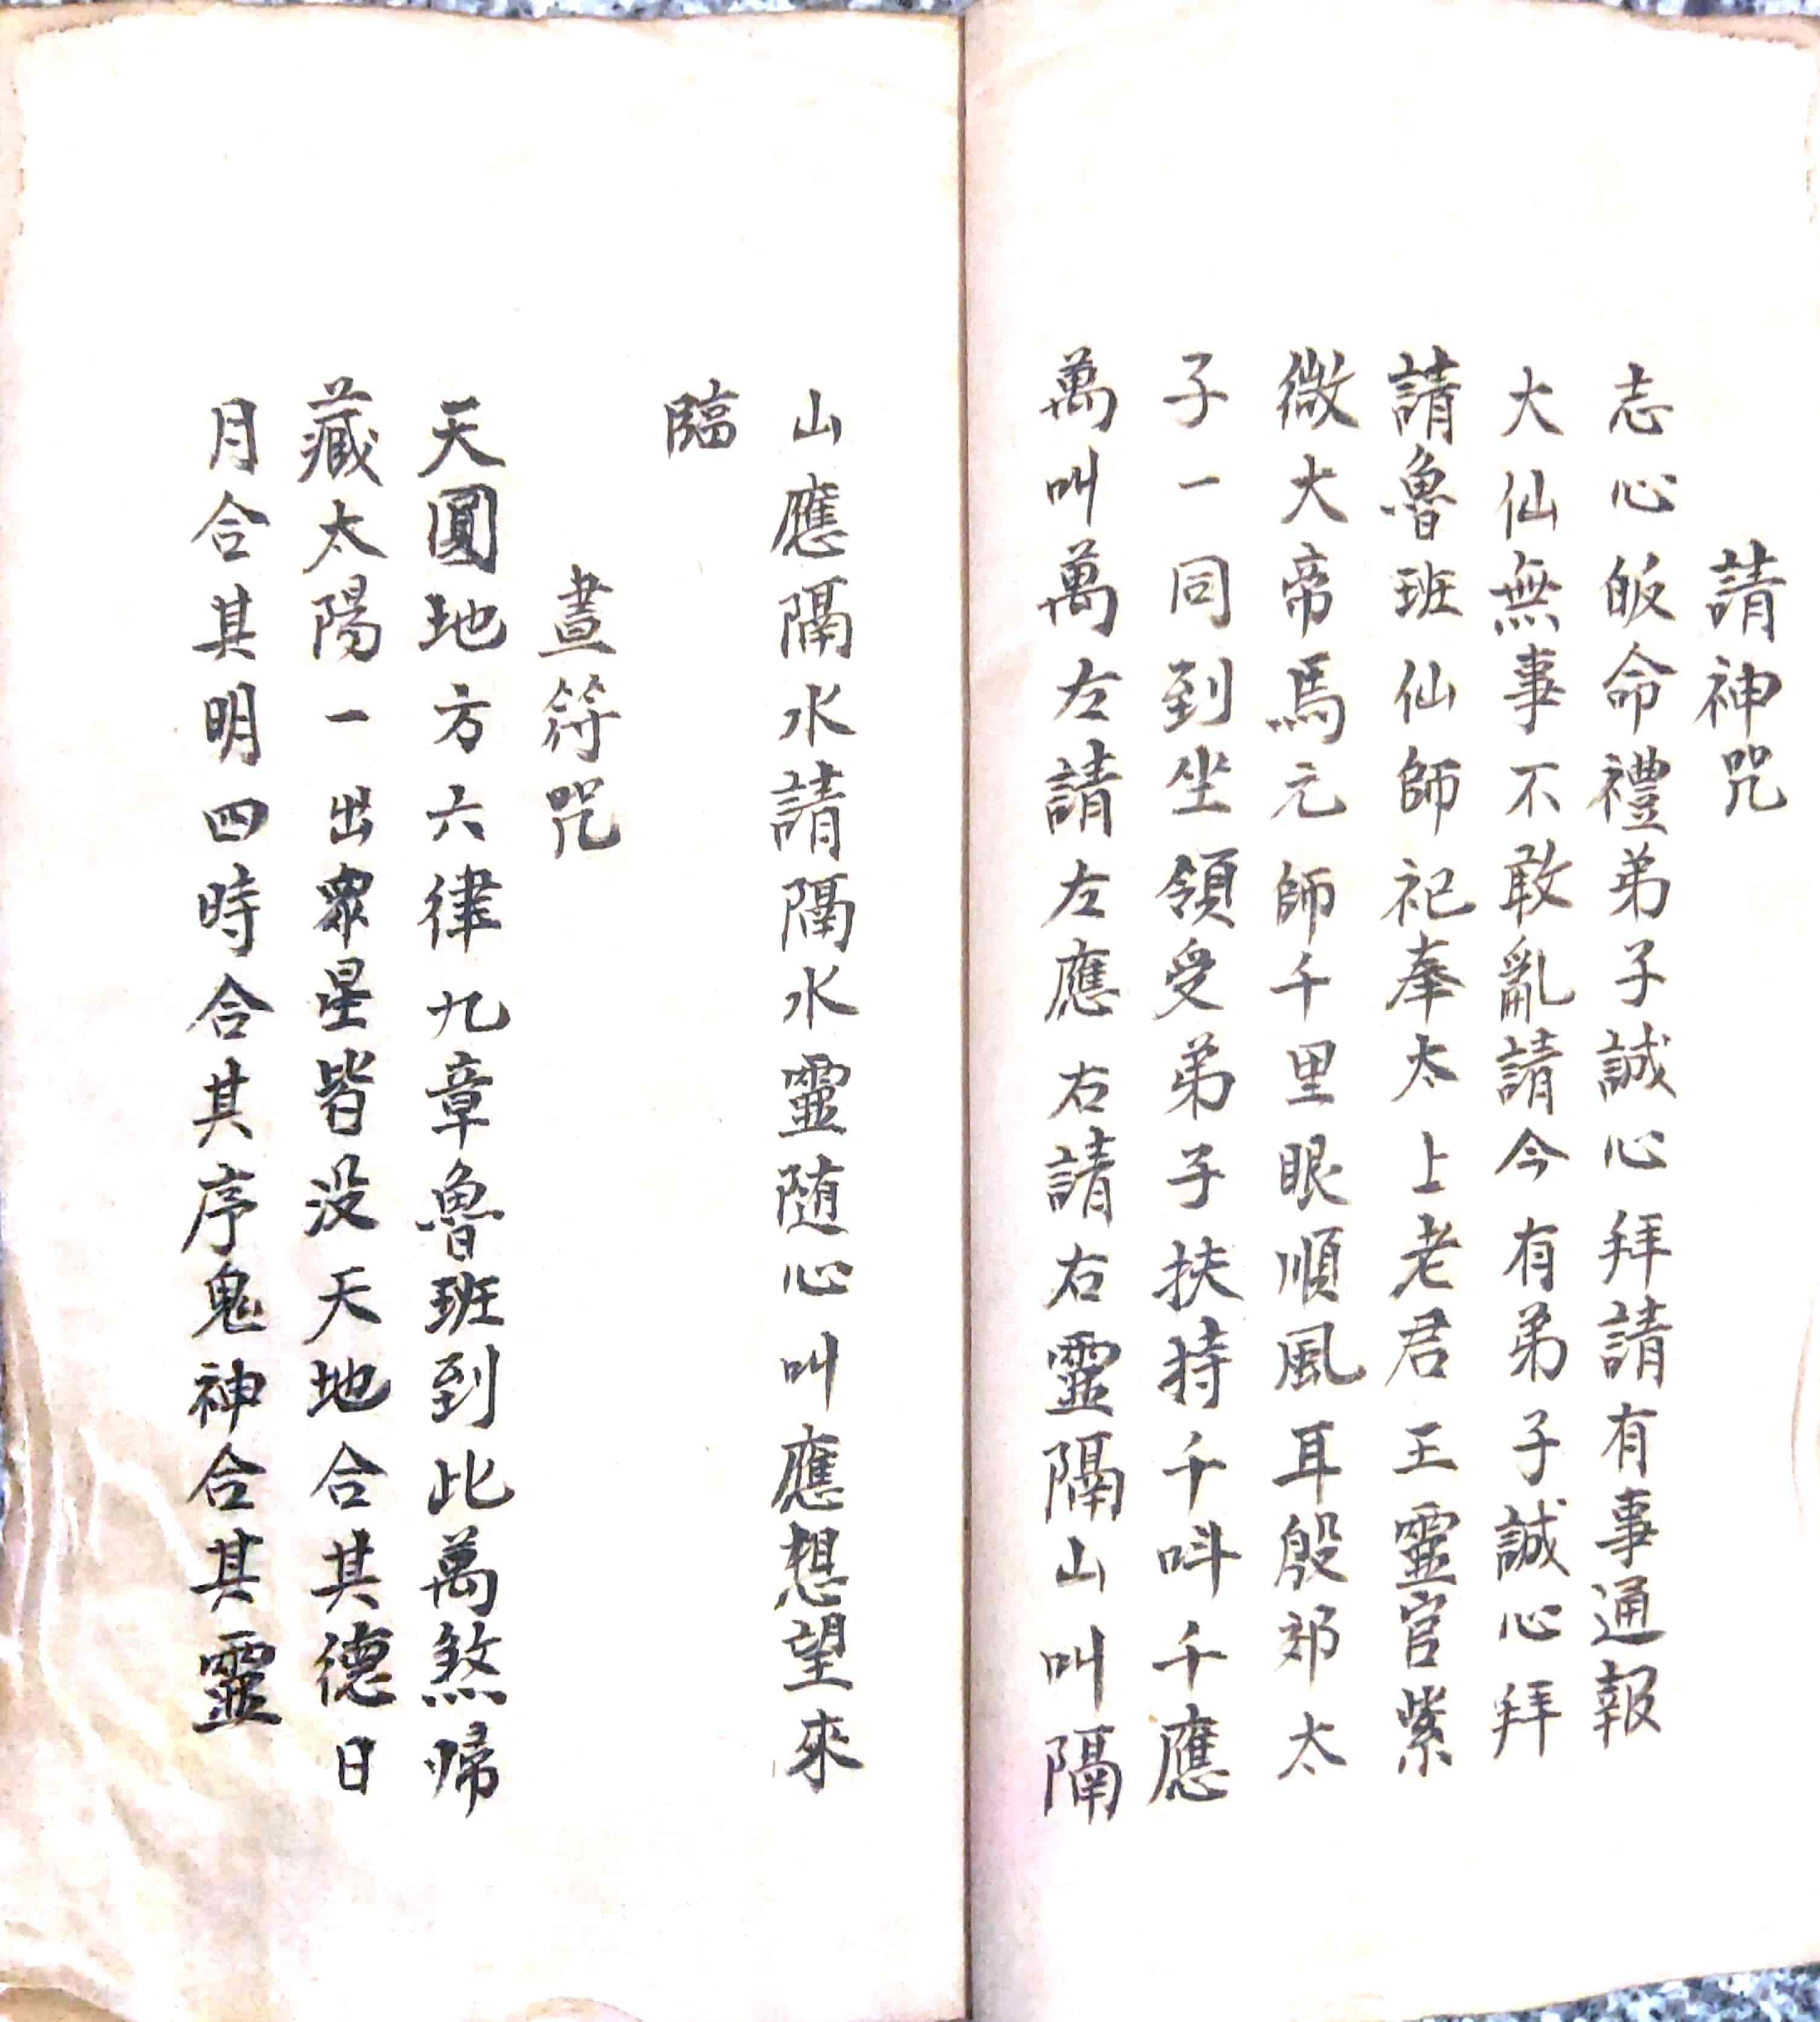 請神咒
志心皈命禮弟子誠心拜請有事通報
大仙無事不敢亂請今有弟子誠心拜
請魯班仙師祀奉太上老君王靈官紫
微大帝馬元師千里眼順風耳殷郊太
子一同到坐領受弟子扶持千呌千應
萬叫萬左請左應右請右靈隔山叫隔
山應隔水請隔水靈随心叫應想望來
臨
畫符咒
天圓地方六律九章魯班到此萬煞歸
藏太陽一出眾星皆没天地合其德日
月合其明四時合其序鬼神合其靈